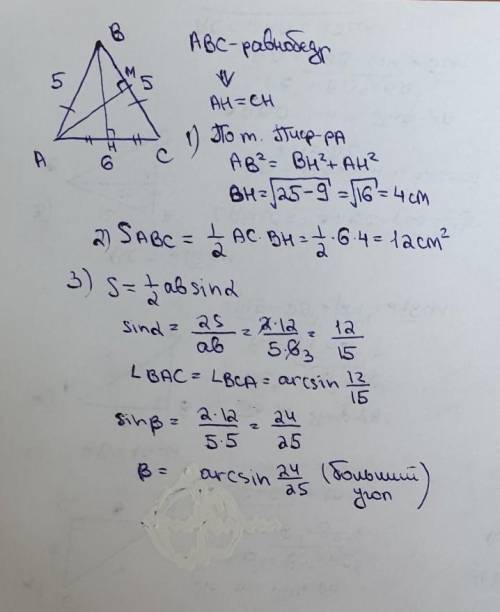 B
5
M
5
A
H
C
6
ABC-равнобедр
⇓
AH=CH
1) По т. Пиф-ра
AB²= BH²+AH²
BH=√25-9=√16=4см
2) SABC = 1/2 AC·BH=1/2·6·4=12см²
3) S=1/2absinα
sinα= 2S/ab = 2·12/5·6 3 = 12/15
∠BAC=∠BCA=arcsin 12/15
sinβ= 2·12/5·5 = 24/25
β= arcsin 24/25 (больший
угол)